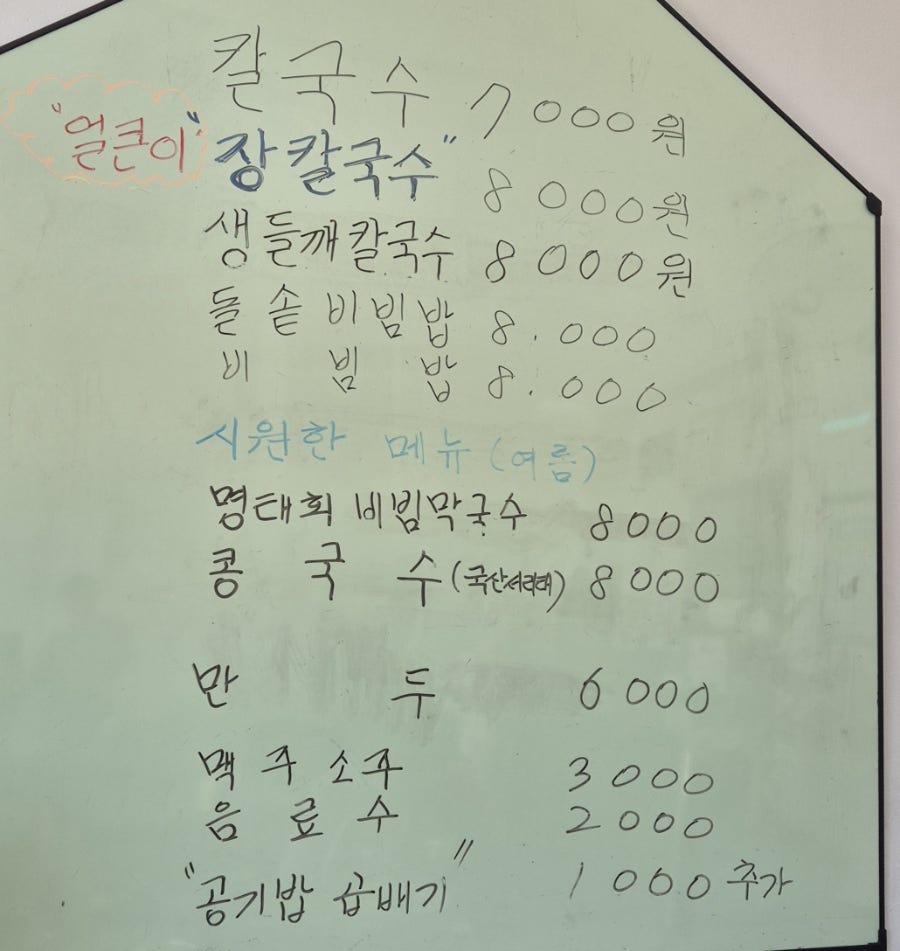 칼국수 7000원
"얼큰이" 장칼국수" 8000원
생들깨칼국수 8000원
돌솥비빔밥 8.000
비빔밥 8.000
시원한 메뉴(여름)
명태회 비빔막국수 8000
콩국수(국산서리태) 8000
만두 6000
맥주소주 3000
음료수 2000
"공기밥 곱배기" 1000추가